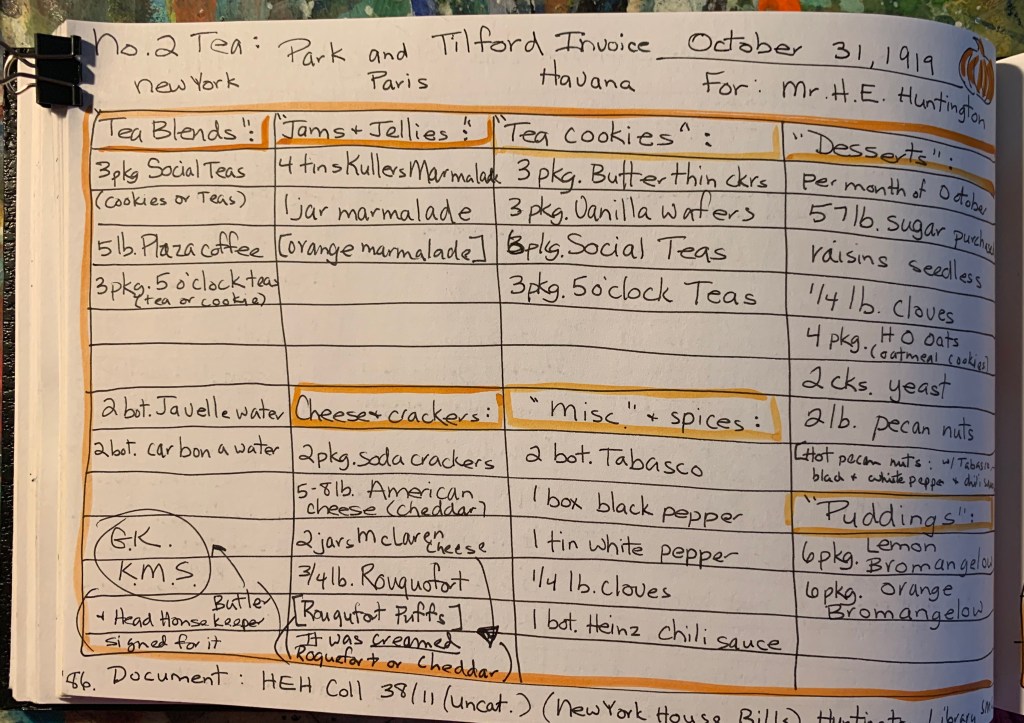 No. 2 Tea: Park and Tilford Invoice October 31, 1919
New York Paris Havana For: Mr. H.E. Huntington
Tea Blends":
3 pkg Social Teas
(cookies or Teas)
5 lb. Plaza coffee
3 pkg. 5 o'clock teas
(tea or cookie)
2 bot. Javelle water
2 bot. carbona water
G.K.
K.M.S.
Butler
+ Head House keeper
signed for it
"Jams + Jellies":
4 tins Kullers Marmalade
1 jar marmalade
[orange marmalade]
Cheese + crackers:
2 pkg. soda crackers
5-8 lb. American
cheese (cheddar)
2 jars McLaren
cheese
3/4 lb. Rouquofort
[Rouqufort Puffs]
It was creamed
Roquefort or Cheddar
"Tea cookies":
3 pkg. Butterthin ckrs
3 pkg. Vanilla wafers
3 pkg. Social Teas
3 pkg. 5 o'clock Teas
"Misc." + spices:
2 bot. Tabasco
1 box black pepper
1 tin white pepper
1/4 lb. cloves
1 bot. Heinz chili sauce
"Desserts":
per month of October
57 lb. sugar
raisins seedless
1/4 lb. cloves
4 pkg. H O oats
(oatmeal cookies)
2 cks. yeast
2 lb. pecan nuts
[Hot pecan nuts: w/ Tabasco,
black + white pepper + chili
"Puddings":
6 pkg. Lemon
Bromangelow
6 pkg. orange
Bromangelow
'86. Document: HEH Coll 38/11 (uncat.) (New York House Bills) Huntington Library